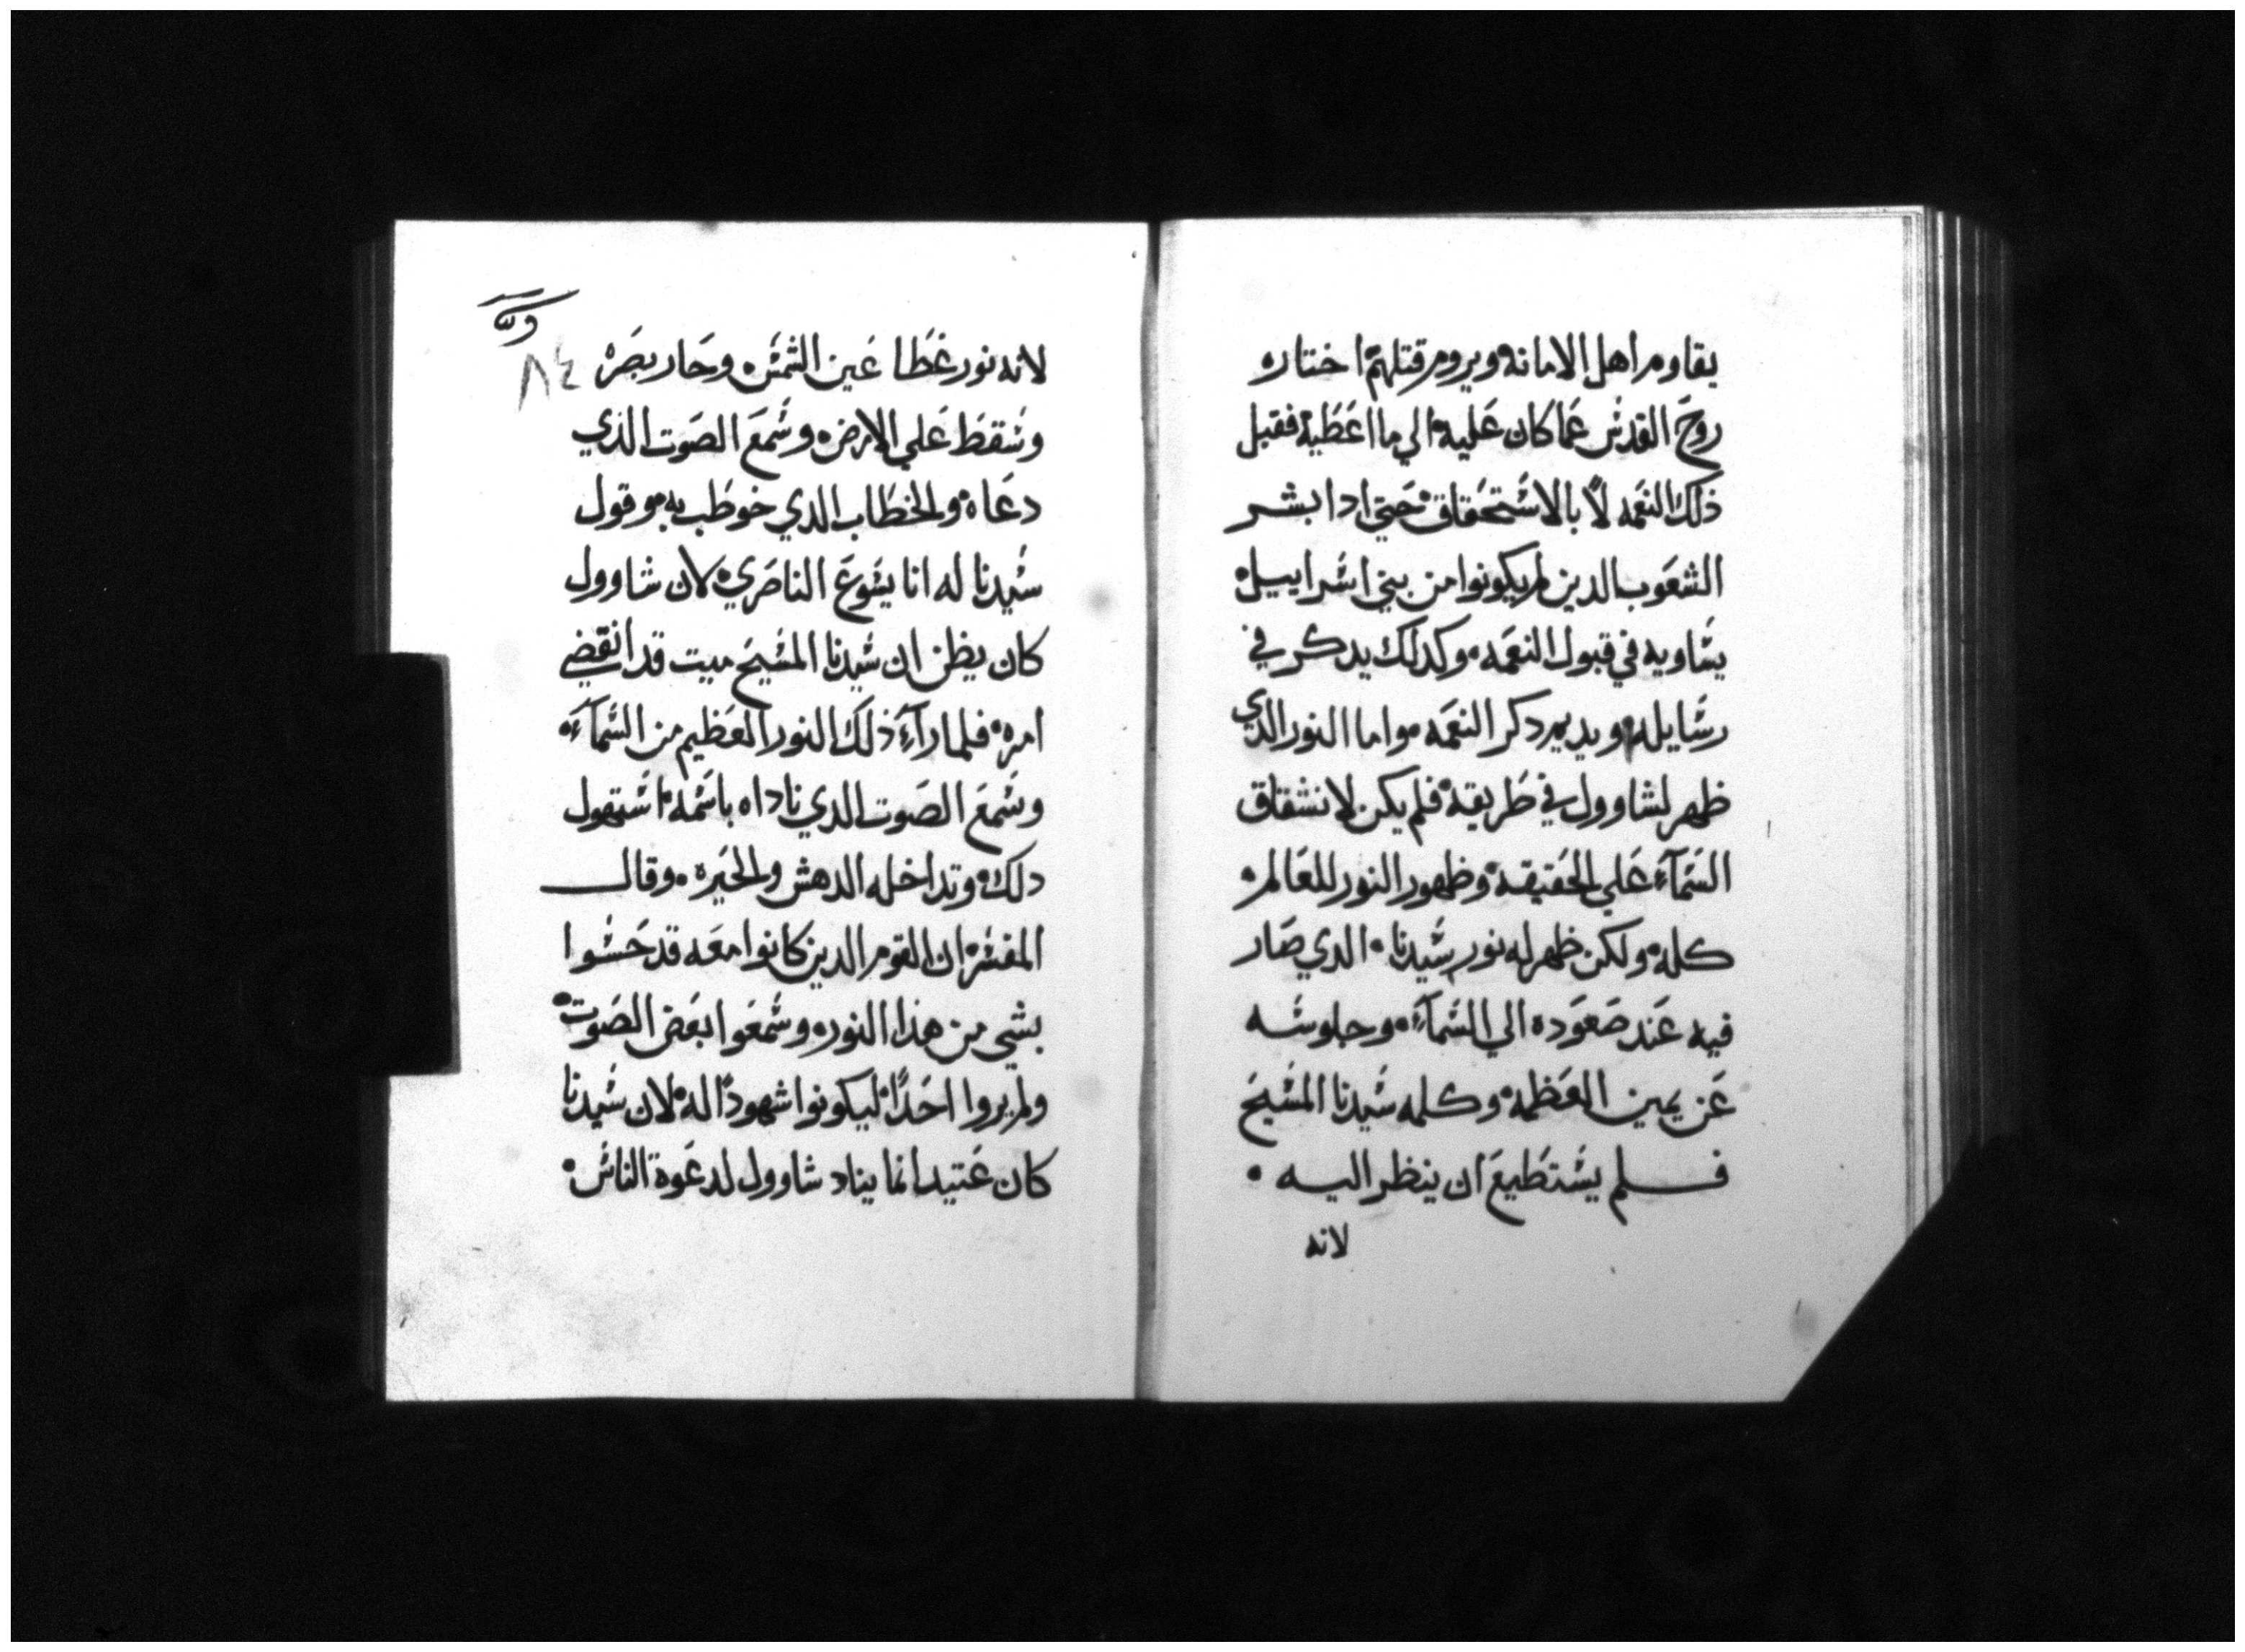 يقاوم اهل الامانه ويروم قتلهم اختاره
روح القدس عما كان عليه الي ما اعطيه فقبل
ذلك النعمه لا بالاستحقاق حتي ادا بشر
الشعوب الدين لم يكونوا من بني اسراييل
يساويه في قبول النعمه وكدلك يدكر في
رسايله ويديم دكر النعمه واما النور الدي
ظهر لشاوول في طريقه فلم يكن لانشقاق
السمآء علي الحقيقه وظهور النور للعالم
كله ولكن ظهر له نور سيدنا الدي صار
فيه عند صعوده الي السمآء وجلوسه
عن يمين العظمه وكلمه سيدنا المسيح
فلم يستطيع ان ينظر اليه
لانه
٨٤
لانه نور غطا عين الشمس وحار بصره
وسقط علي الارض وسمع الصوت الذي
دعاه والخطاب الدي خوطب به هو قول
سيدنا له انا يسوع الناصري لان شاوول
كان يظن ان سيدنا المسيح ميت قد انقضي
امره فلما رآء ذلك النور العظيم من السمآء
وسمع الصوت الدي ناداه باسمه استهول
دلك وتداخله الدهش والحيره وقال
المفسر ان القوم الدين كانوا معه قد حسوا
بشي من هذا النور وسمعوا بعض الصوت
ولم يروا احدًا ليكونوا شهودًا له لان سيدنا
كان عتيد انما يناد شاوول لدعوة الناس